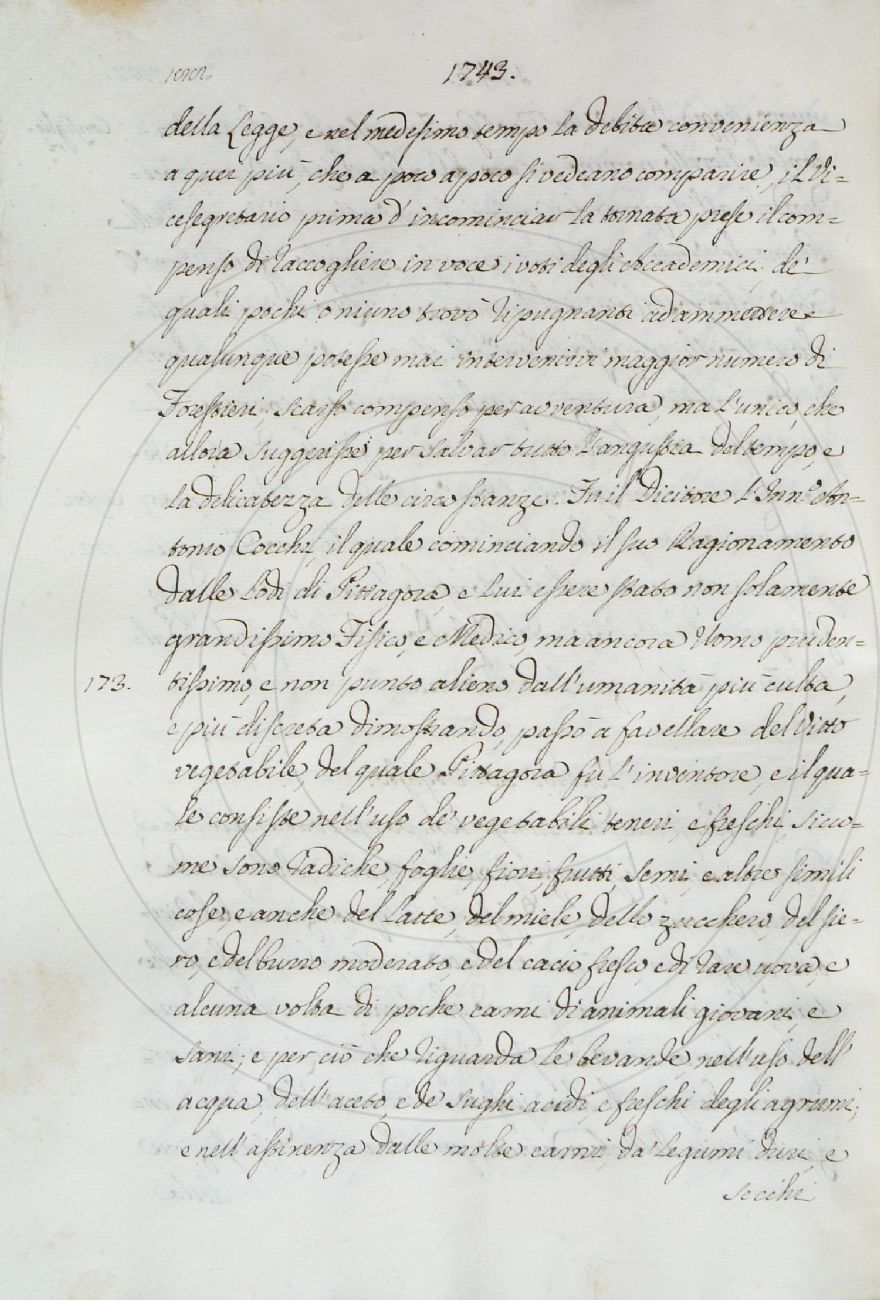 1743.
della Legge, e nel medesimo tempo la debita convenienza
a quei più, che a poco a poco si vedeano comparire, il Vi=
cesegretario prima d'incominciar la tornata prese il com=
penso di raccogliere in voce i voti degli Accademici, de'
quali pochi o niuno trovò ripugnanti ad ammettere
qualunque potesse mai intervenirvi maggior numero di
Forestieri; scarso compenso per avventura, ma l'unico, che
allora suggerisse per salvar tutto l'angustia del tempo, e
la delicatezza delle circostanze. Fu il Dicitore l'Inn.º An=
tonio Cocchi, il quale cominciando il suo Ragionamento
dalle Lodi di Pittagora, e Lui essere stato non solamente
grandissimo Fisico, e Medico, ma ancora Uomo pruden=
173. tissimo, e non punto alieno dall'umanità più culta,
e più discreta dimostrando, passò a favellare del Vitto
vegetabile, del quale Pittagora fù l'inventore, e il qua=
le consiste nell'uso de' vegetabili teneri, e freschi, sicco=
me sono radiche, foglie, fiori, frutti, semi, e altre simili
cose, e anche del Latte, del miele, dello zucchero, del sie=
ro, e del burro moderato, e del cacio fresco, e di rare uova, e
alcuna volta di poche carni di animali giovani, e
sani; e per ciò che riguarda le bevande nell'uso dell'
acqua, dell'aceto, e de' sughi acidi, e freschi degli agrumi;
e nell'astinenza dalle molte carni, da' legumi duri, e
secchi